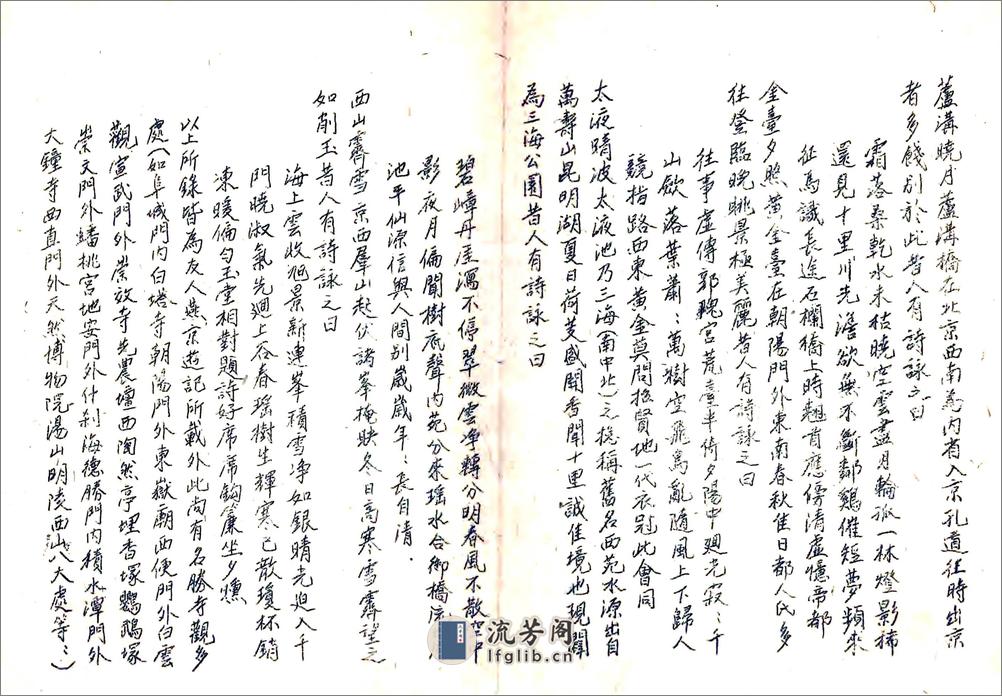 蘆溝曉月蘆溝橋在北京西南為內有入京孔道往時出京
者多餞別於此昔人有詩詠之曰
霜落桑乾水未枯曉空雲盡月輪孤一林燈影稀
還見十里川光澹欲無不斷鄰鷄催短夢頻來
征馬識長途石欄橋上時翹首應傍清虛憶帝都
金臺夕照黃金臺在朝陽門外東南春秋佳日都人氏多
往登臨晚眺景極美麗昔人有詩詠之曰
往事虛傳郭隗宮荒臺半倚夕陽中廻光寂:千
山歛落葉蕭:萬樹空飛鳥亂隨風上下歸人
競指路西東黃金莫問招賢地一代衣冠此會同
太液晴波太液池乃三海(南中北)之總稱舊名西苑水源出自
萬壽山昆明湖夏日荷芰盛開香聞十里誠佳境也現闢
為三海公園昔人有詩詠之曰
碧嶂丹崖瀉不停翠微雲净轉分明春風不散空中
影夜月偏聞樹底聲內苑分來瑤水合御橋流
池平仙源信與人間別歲歲年:長自清.
西山霽雪京西羣山起伏諸峯掩映冬日高寒雪霽望之
如削玉昔人有詩詠之曰
海上雲收旭景新連峯積雪净如銀晴光迥入千
門曉淑氣先廻上谷春瑤樹生輝寒已散瓊杯銷
凍暖偏勻玉堂相對題詩好席席鈎簾坐夕燻
以上所錄皆為友人燕京遊記所載外此尚有名勝寺觀多
處(如阜城門內白塔寺朝陽門外東嶽廟西便門外白雲
觀宣武門外崇效寺先農壇西陶然亭埋香塚鸚鵡塚
崇文門外蟠桃宮地安門外什刹海德勝門內積水潭門外
大鐘寺西直門外天然博物院湯山明陵西山八大處等:)
流芳阁
lfglib.cn